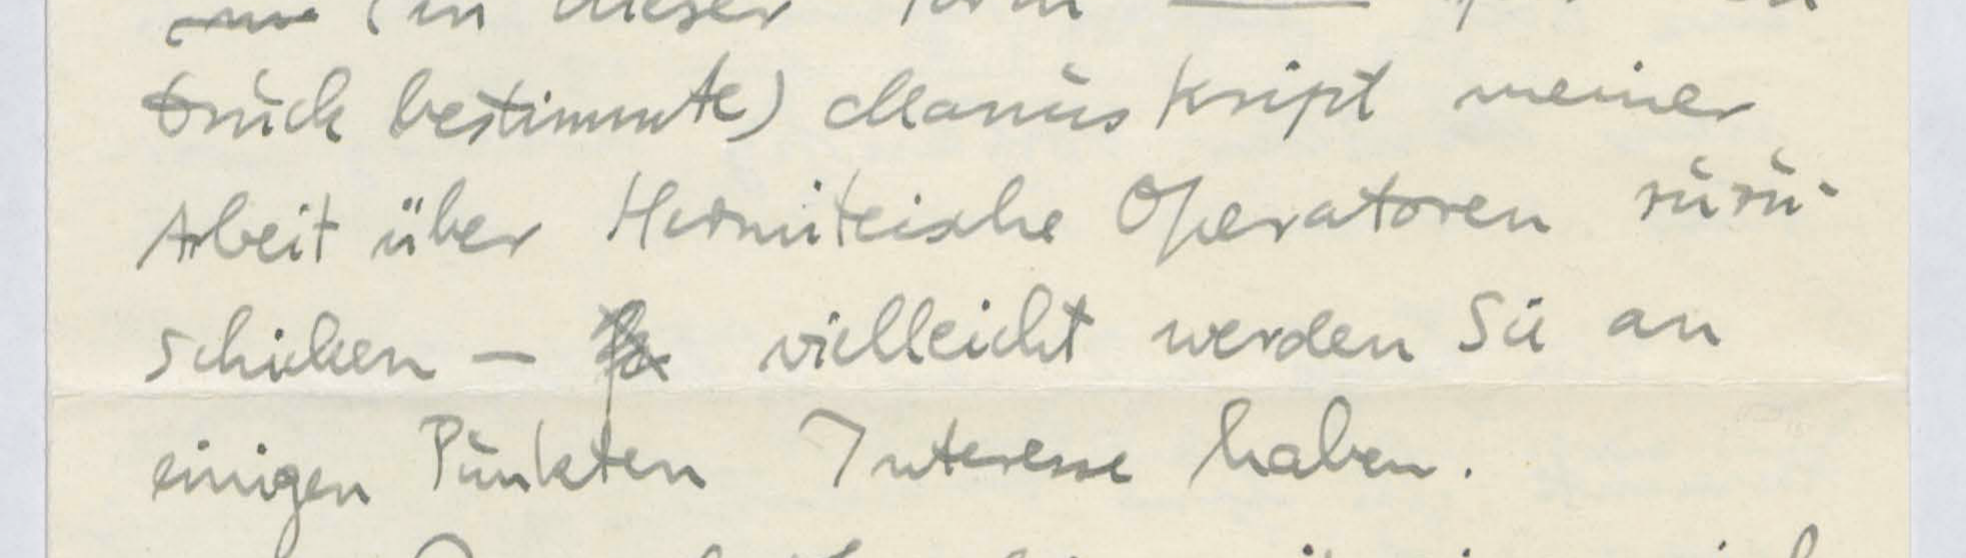 (in dieser Form
Druck bestimmte) Manuskript meiner
Arbeit über Hermiteische Operatoren
schicken — vielleicht werden Sie an
einigen Punkten Interesse haben.